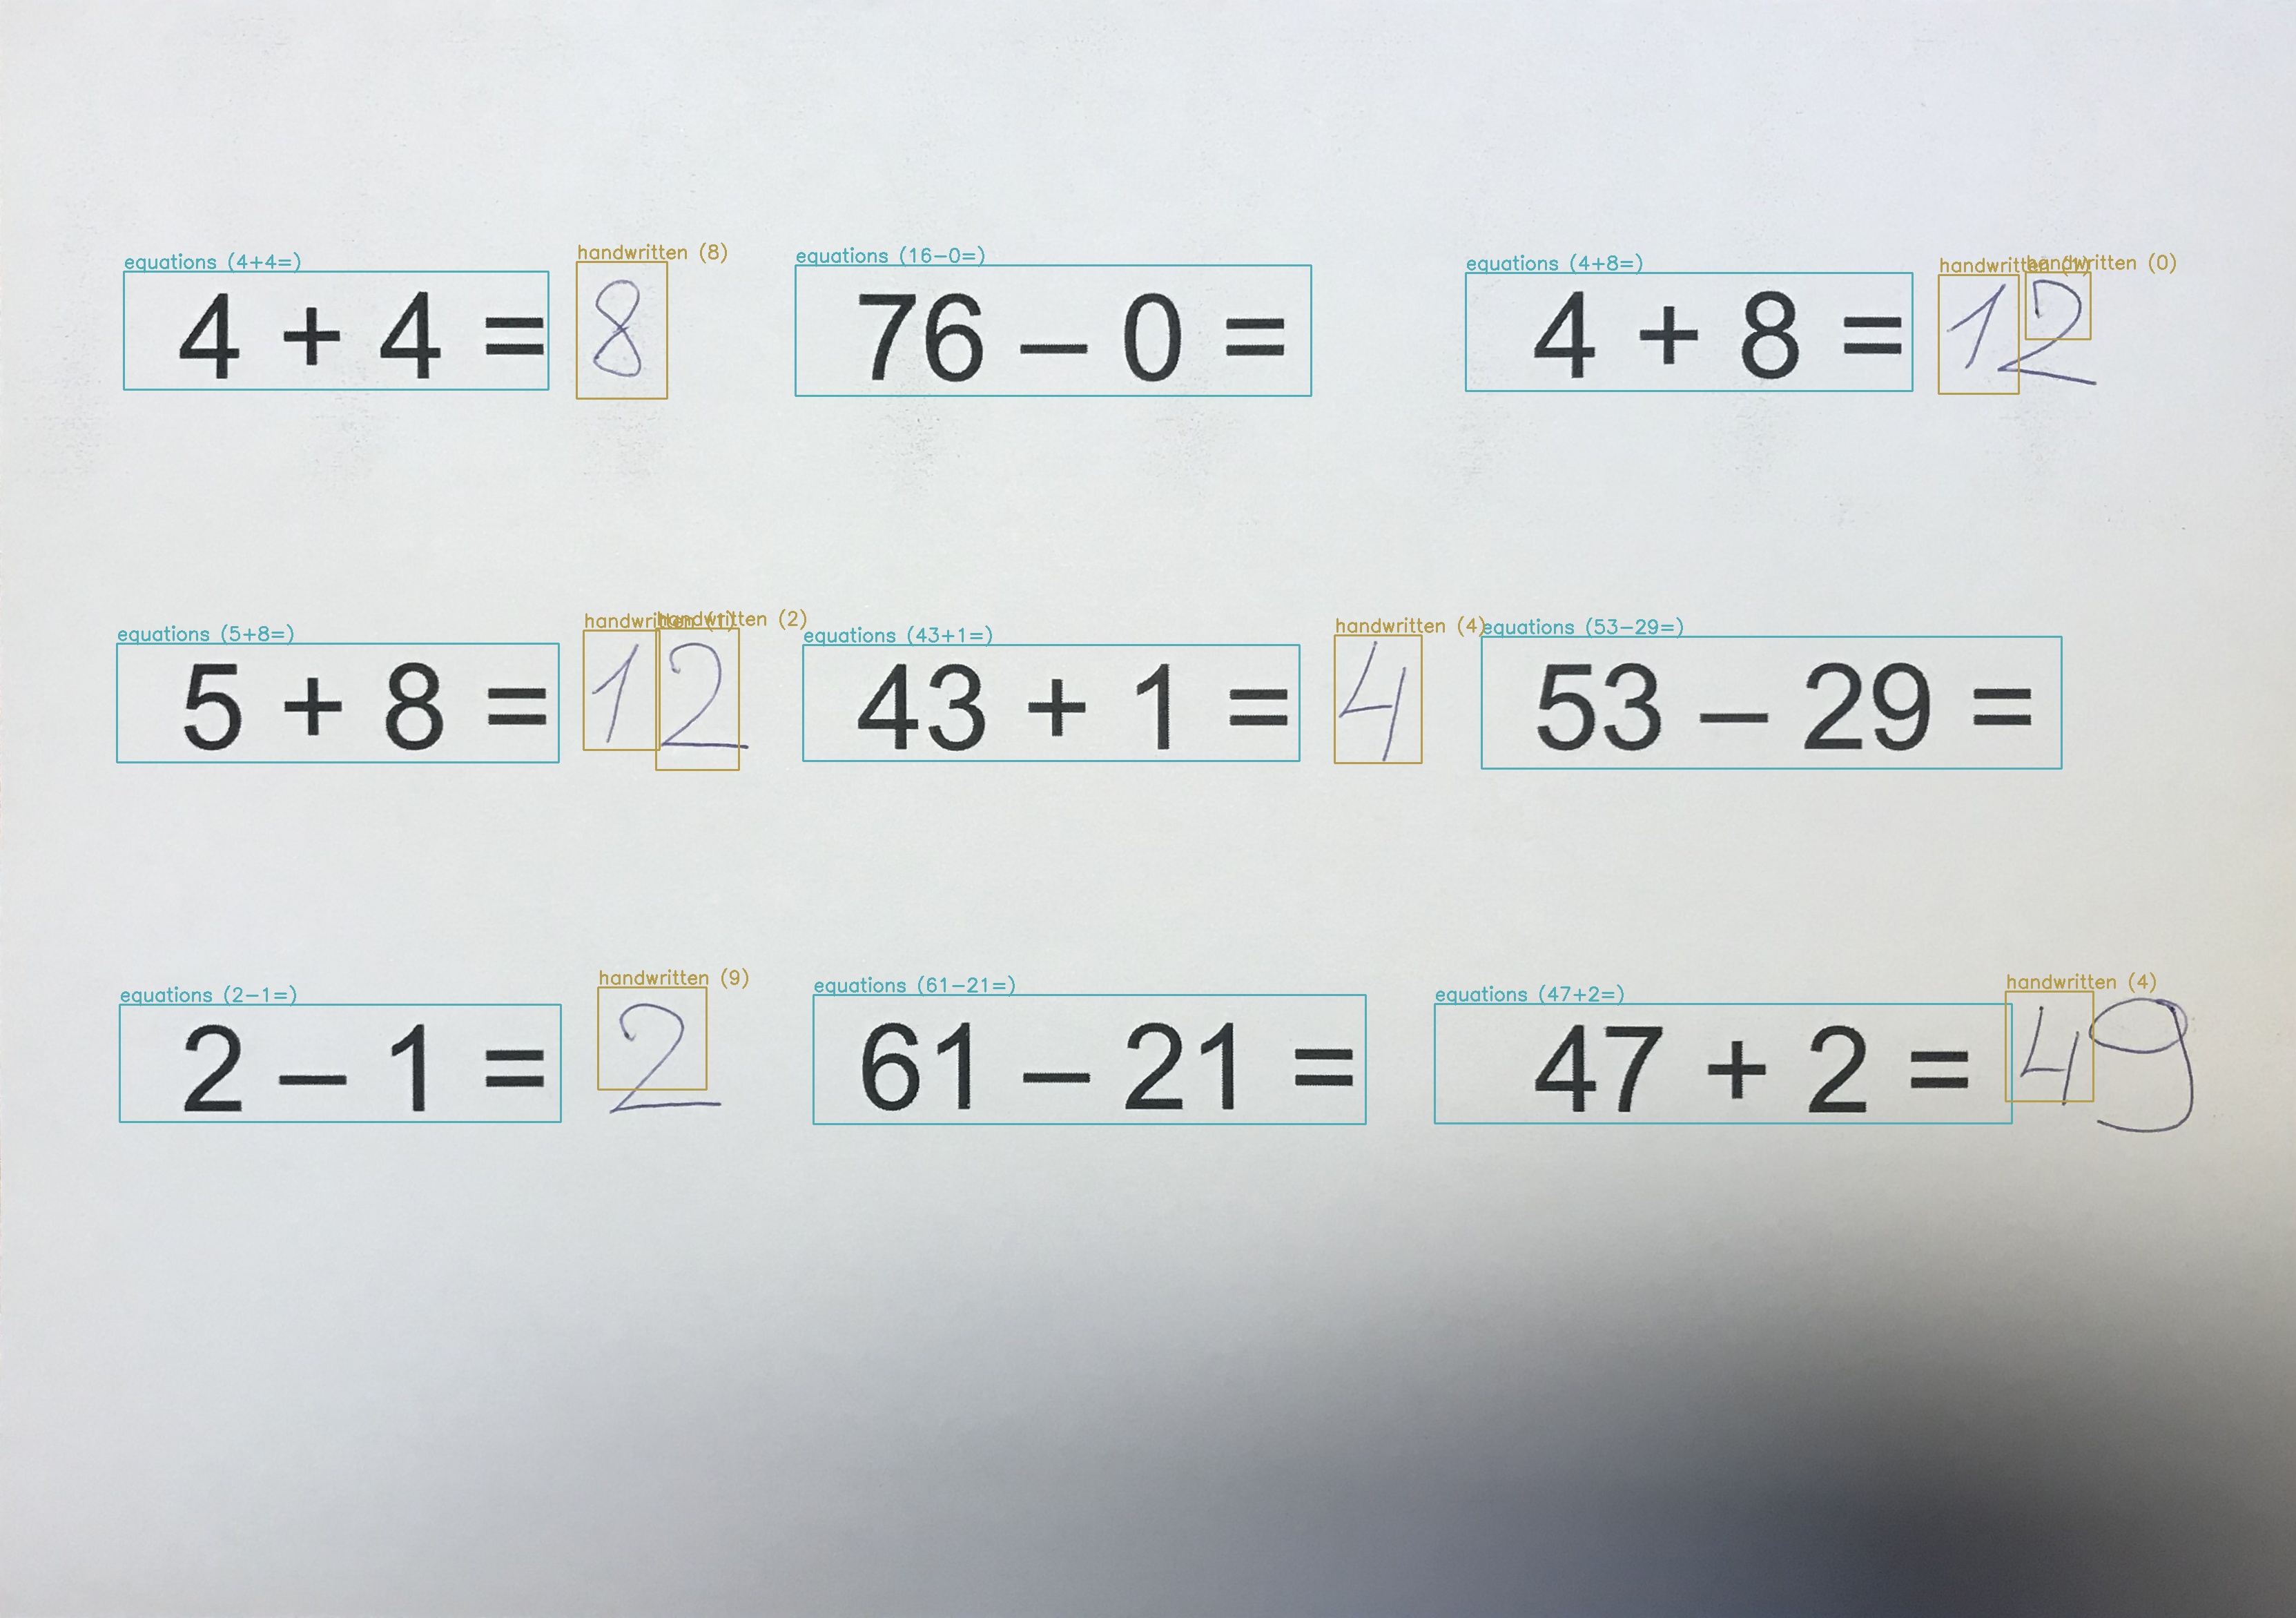 equations (4+4=) handwritten (8) equations (16-0=) equations (4+8=) handwritten (1) handwritten (0)
4 + 4 = 8 76 – 0 = 4 + 8 = 12
equations (5+8=) handwritten (1) handwritten (2) equations (43+1=) handwritten (4) equations (53-29=)
5 + 8 = 12 43 + 1 = 4 53 – 29 =
equations (2-1=) handwritten (9) equations (61-21=) equations (47+2=) handwritten (4)
2 – 1 = 2 61 – 21 = 47 + 2 = 49